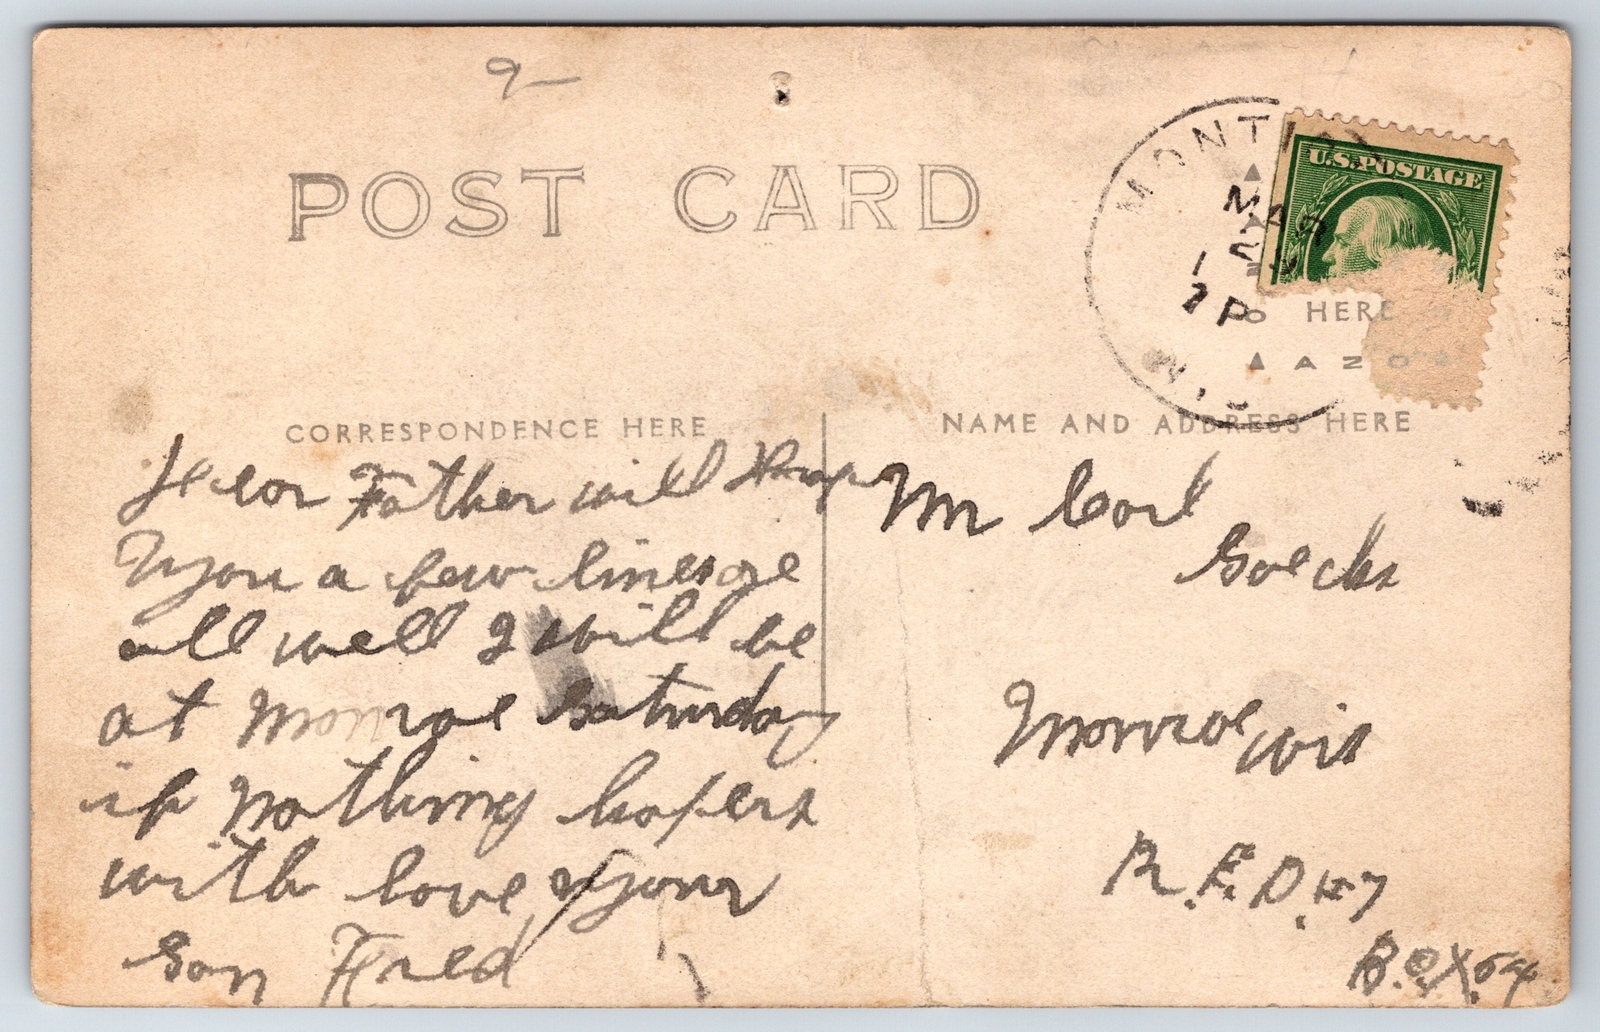 9-
POST CARD
MONTI
MAR
1
7 P
WIS
U.S. POSTAGE
O HERE
AZO
CORRESPONDENCE HERE
NAME AND ADDRESS HERE
Dear Father will Drop
you a few lines
all well I will be
at Monroe Saturday
if nothing hapens
with love your
Son Fred
Mr Carl
Goecks
Monroe Wis
R.F.D #7
BOX 64